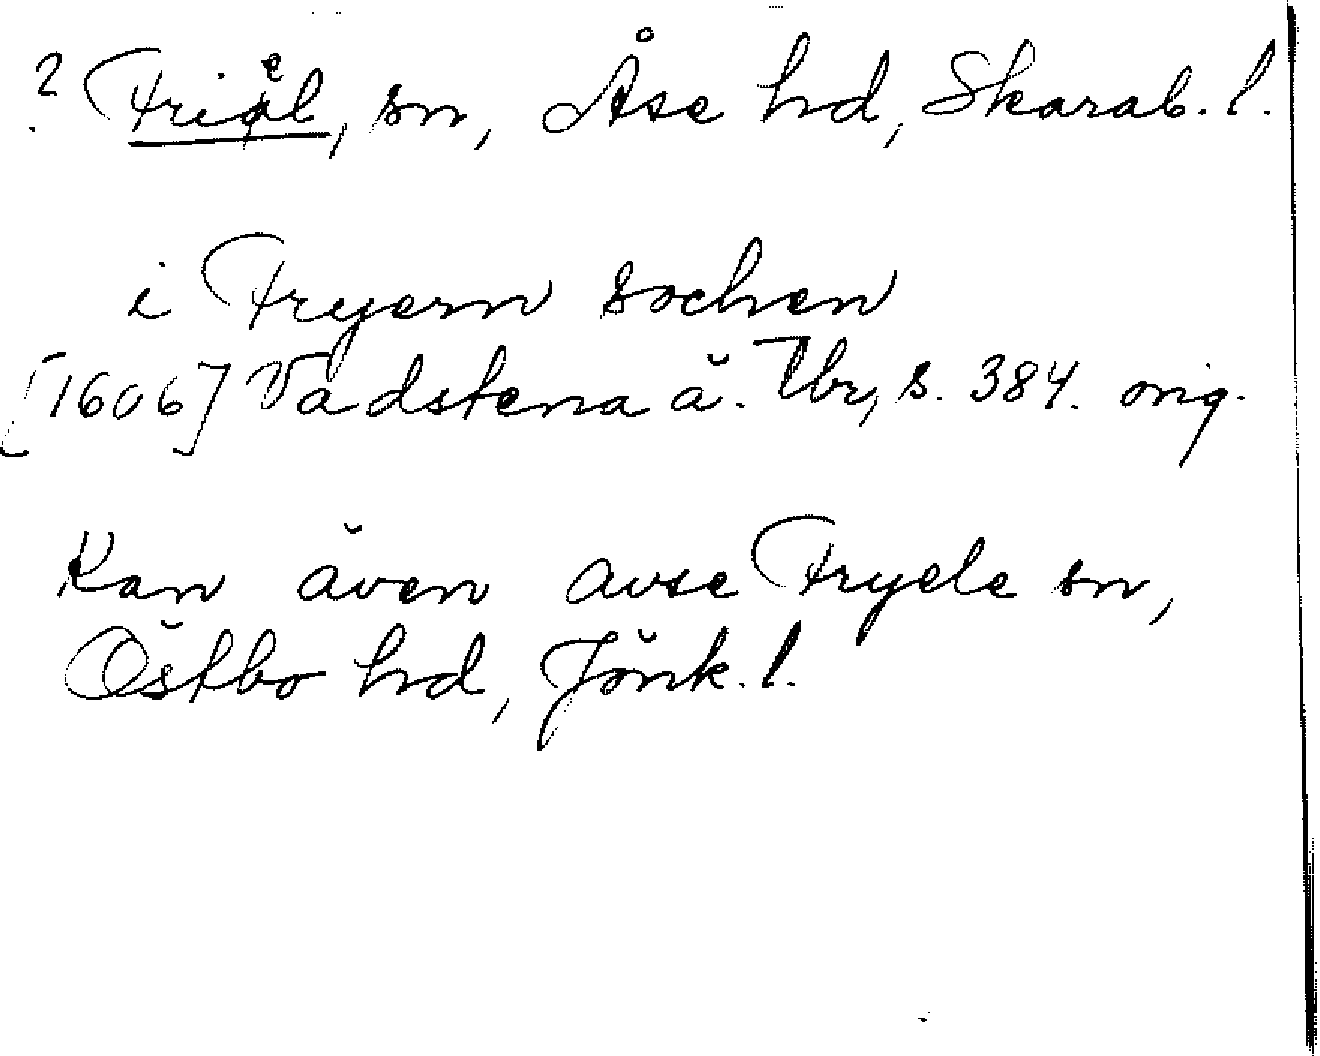 ? Friel, sn, Åse hd, Skarab. l.
i Fryern sochen
[1606] Vadstena ä. Tbr, s. 384. orig.
Kan även avse Fryele sn,
Östbo hd, Jönk. l.